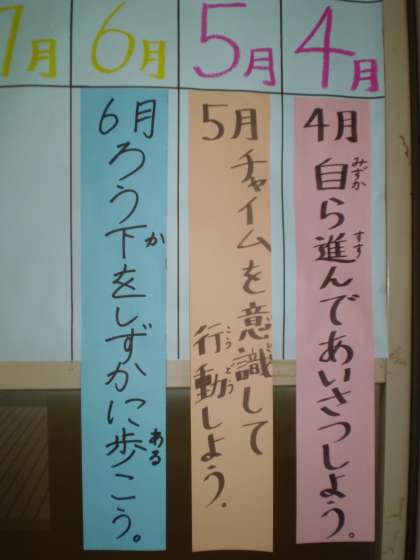 4月
5月
6月
7月
4月 自ら進んであいさつしよう。
5月 チャイムを意識して
行動しよう。
6月 ろう下をしずかに歩こう。